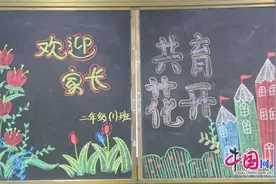 欢迎
家长
二年级(1)班
共育
花开
中国网
www.china.com.cn